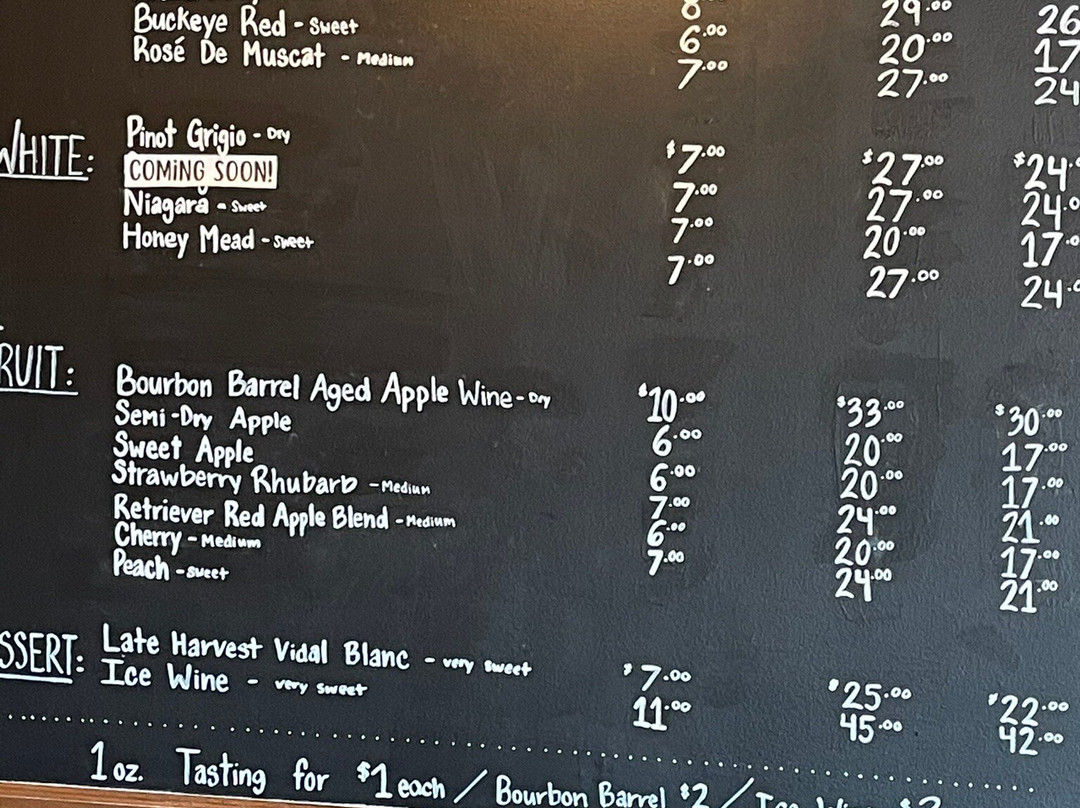 8 29.00 26
Buckeye Red - Sweet 6.00 20.00 17
Rosé De Muscat - Medium 7.00 27.00 24
WHITE: Pinot Grigio - Dry $7.00 $27.00 $24
COMING SOON! 7.00 27.00 24
Niagara - Sweet 7.00 20.00 17
Honey Mead - Sweet 7.00 27.00 24
RUIT: Bourbon Barrel Aged Apple Wine - Dry $10.00 $33.00 $30.00
Semi-Dry Apple 6.00 20.00 17.00
Sweet Apple 6.00 20.00 17.00
Strawberry Rhubarb - Medium 7.00 24.00 21.00
Retriever Red Apple Blend - Medium 6.00 20.00 17.00
Cherry - Medium 7.00 24.00 21.00
Peach - Sweet
SSERT: Late Harvest Vidal Blanc - very sweet $7.00 $25.00 $22.00
Ice Wine - very sweet 11.00 45.00 42.00
1 oz. Tasting for $1 each / Bourbon Barrel $2 /